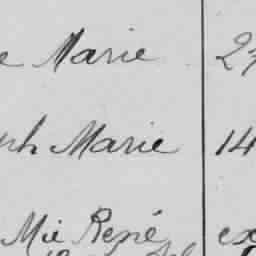 e Marie 27
ph Marie 14
Mie René ex